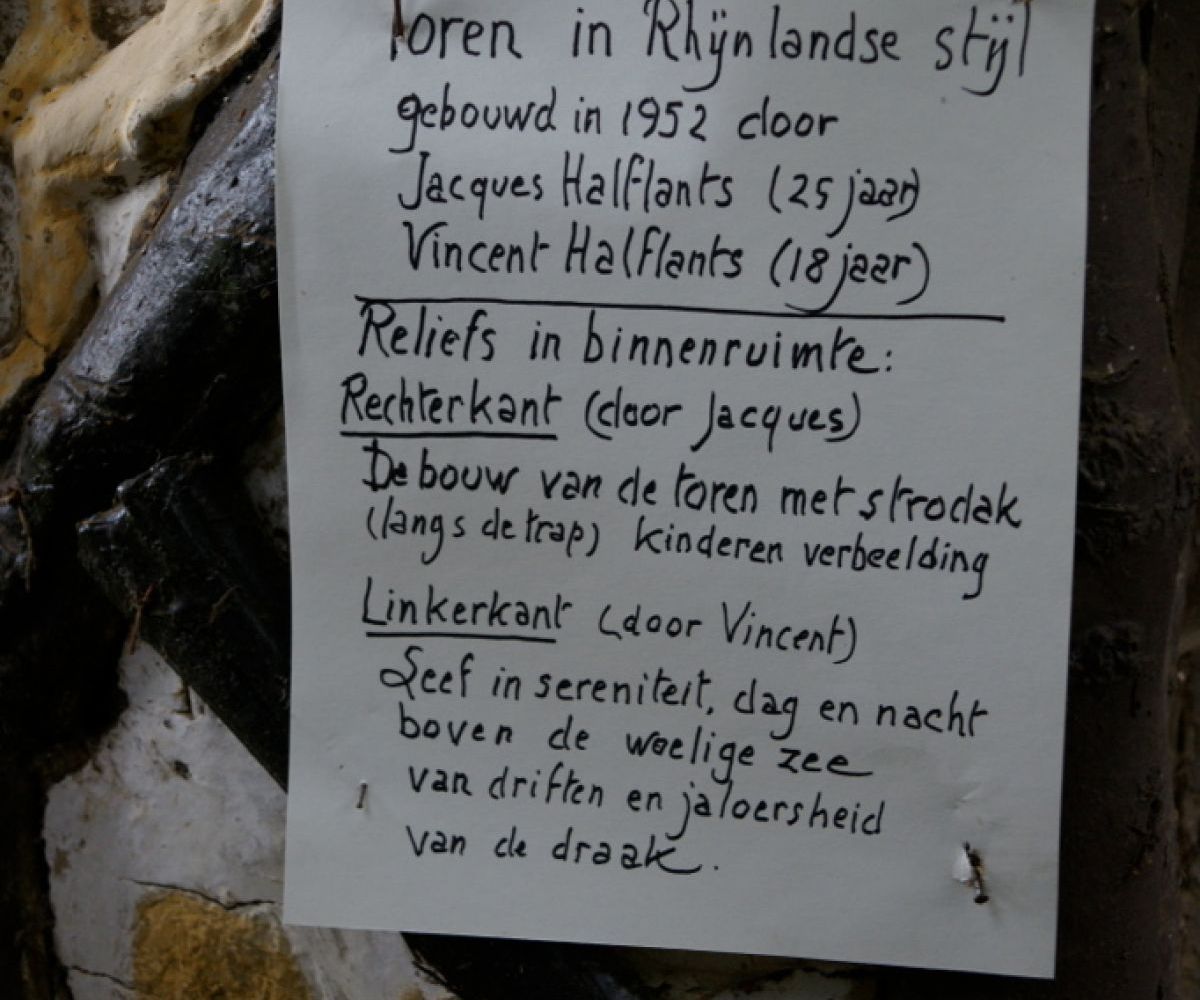 Toren in Rhijnlandse stijl
gebouwd in 1952 door
Jacques Halflants (25 jaar)
Vincent Halflants (18 jaar)
Reliefs in binnenruimte:
Rechterkant (door Jacques)
De bouw van de toren met strodak
(langs de trap) kinderen verbeelding
Linkerkant (door Vincent)
Leef in sereniteit, dag en nacht
boven de woelige zee
van driften en jaloersheid
van de draak.